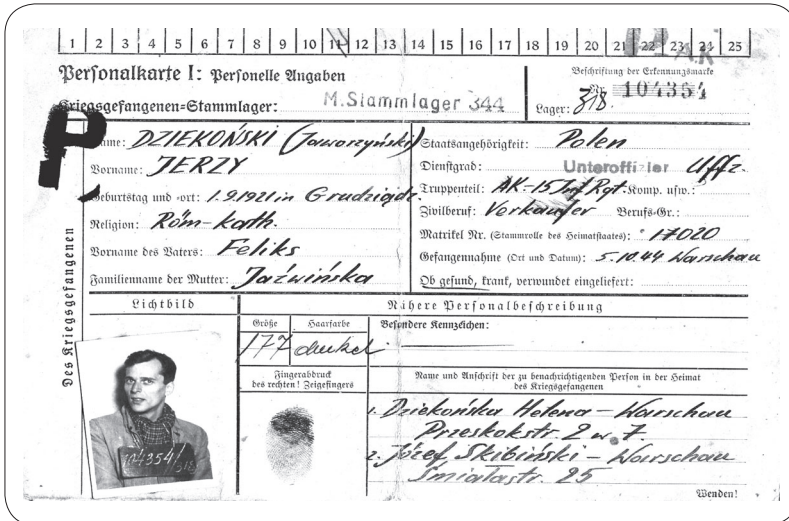 1 2 3 4 5 6 7 8 9 10 11 12 13 14 15 16 17 18 19 20 21 22 23 24 25
Personalkarte I: Personelle Angaben
Kriegsgefangenen=Stammlager: M.Stammlager 344
Beschriftung der Erkennungsmarke
Nr. 104354
Lager: 318.
Des Kriegsgefangenen
Name: DZIEKOŃSKI (Jaworzyński)
Vorname: JERZY
Geburtstag und -ort: 1.9.1921 in Grudziądz.
Religion: Röm-kath.
Vorname des Vaters: Feliks
Familienname der Mutter: Jaźwińska
Staatsangehörigkeit: Polen
Dienstgrad: Unteroffizier Uffz.
Truppenteil: AK-15 Inf Rgt. Komp. usw.:
Zivilberuf: Verkäufer Berufs-Gr.:
Matrikel Nr. (Stammrolle des Heimatstaates): 17020
Gefangennahme (Ort und Datum): 5.10.44 Warschau
Ob gesund, krank, verwundet eingeliefert:
Lichtbild
104354
318
Nähere Personalbeschreibung
Größe
177
Haarfarbe
dunkel
Besondere Kennzeichen:
Fingerabdruck
des rechten! Zeigefingers
Name und Anschrift der zu benachrichtigenden Person in der Heimat
des Kriegsgefangenen
1. Dziekońska Helena – Warschau
Przeskokstr 2 w. 7.
2. Józef Skibiński – Warschau
Śmiałastr 25
Wenden!